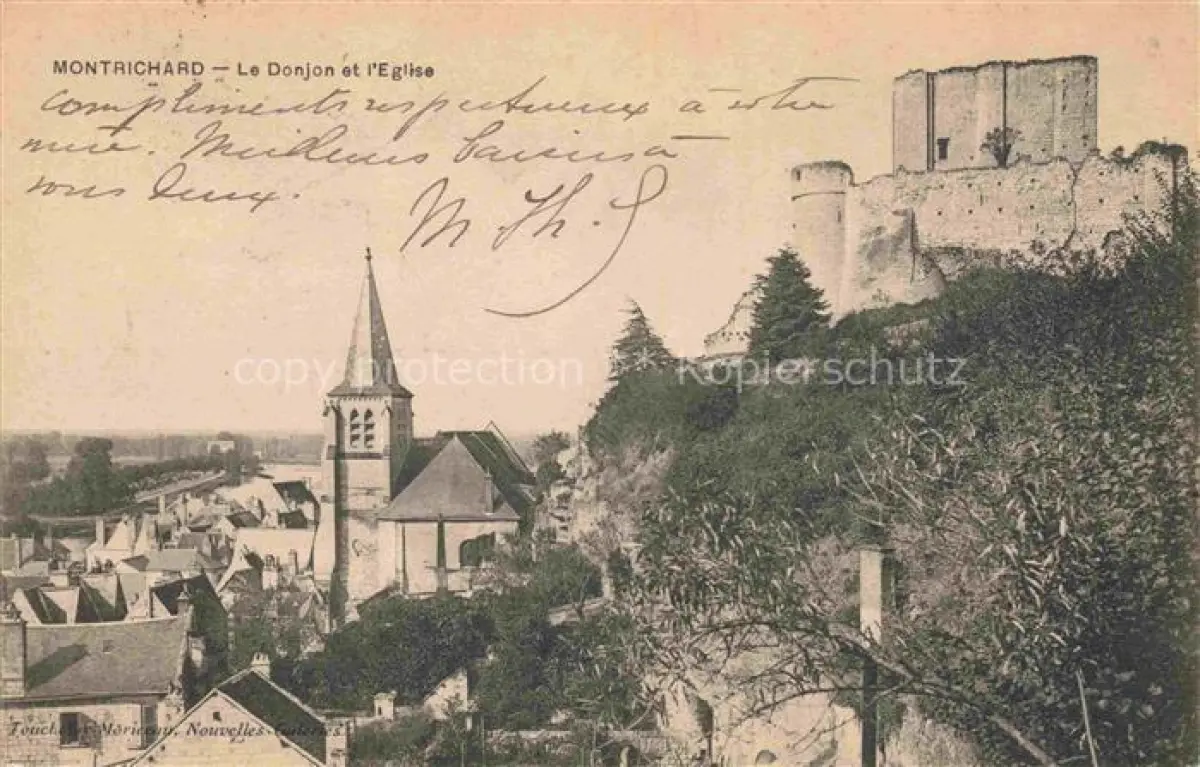 MONTRICHARD – Le Donjon et l'Eglise
Compliments respectueux à votre
mère. Meilleurs baisers à
vous deux.
M Th. S
copy protection Kopierschutz
Nouvelles Galeries